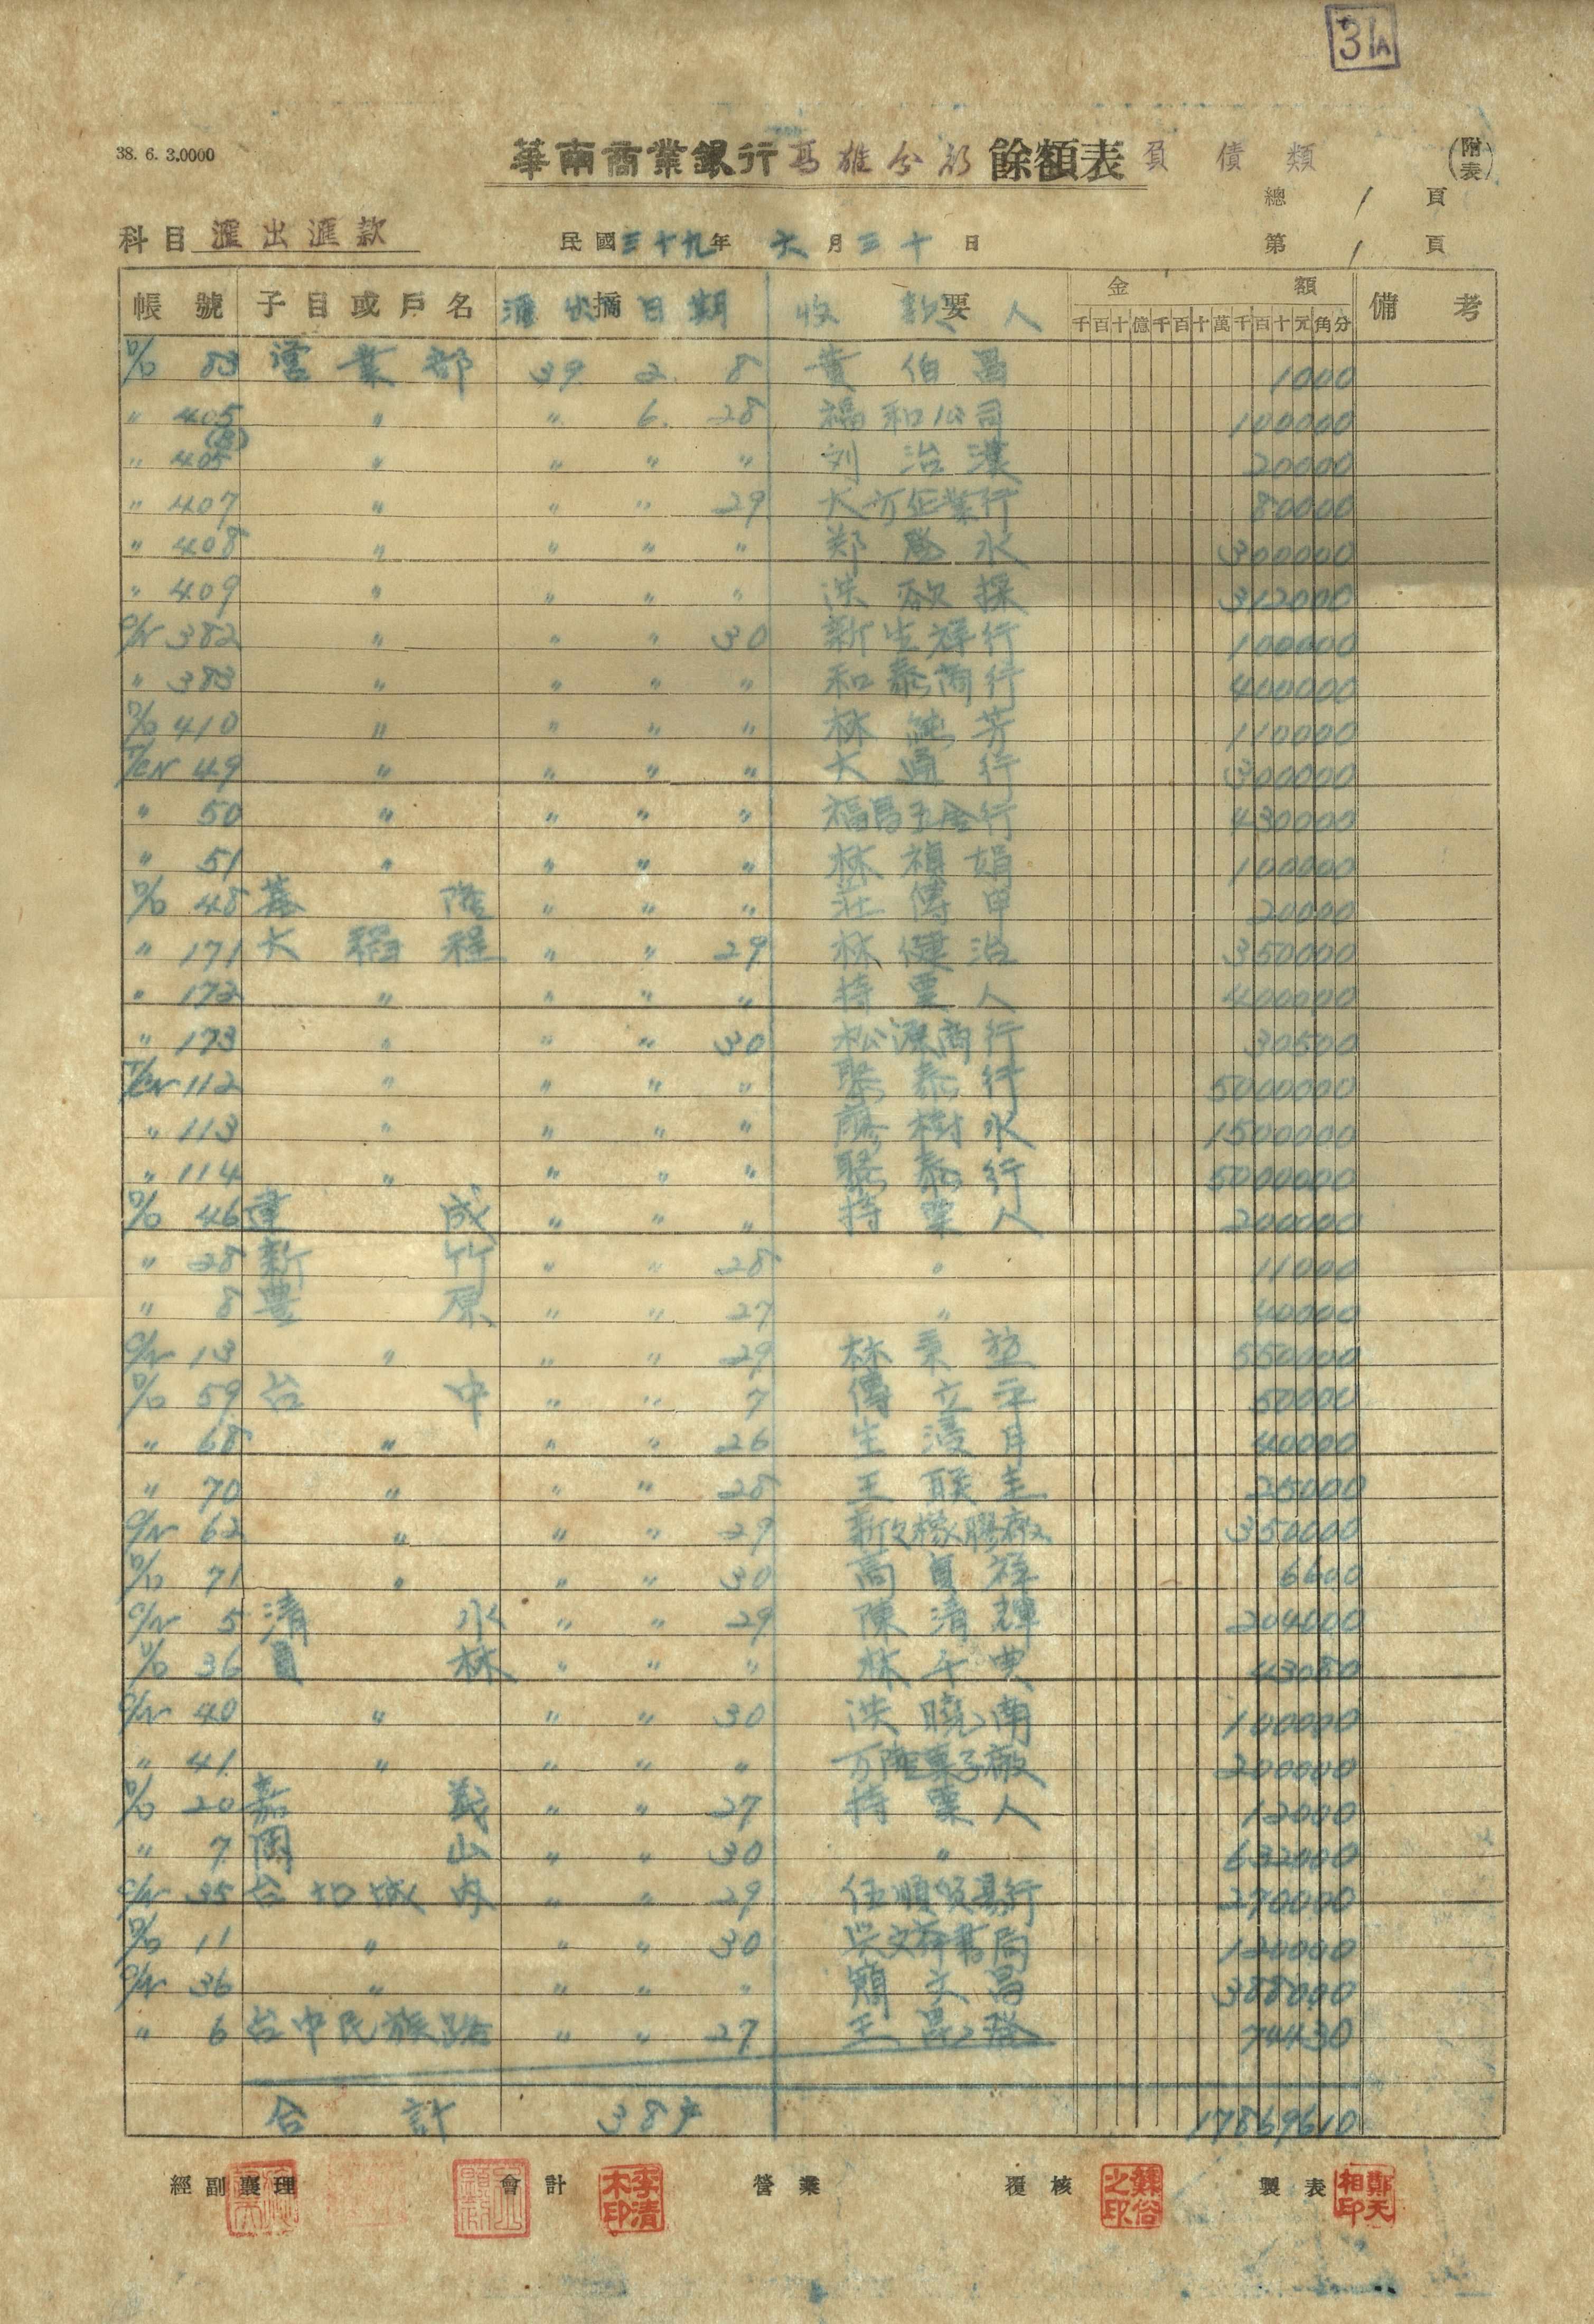 31A
38. 6. 3.0000
華南商業銀行高雄分行餘額表負債類
(附表)
總 / 頁
科目 滙出滙款 民國三十九年 六月三十日 第 / 頁
帳號 子目或戶名 滙出日期 摘要 收款人 金額 備考
千百十億千百十萬千百十元角分
D/D 83 営業部 39 2 8 黄伯昌 1000
〃 405 〃 〃 6 28 福和公司 100000
〃 405(B) 〃 〃 〃 〃 刘治漢 20000
〃 407 〃 〃 〃 29 大方企業行 80000
〃 408 〃 〃 〃 〃 郑水 300000
〃 409 〃 〃 〃 〃 洪 312000
C/N 382 〃 〃 〃 30 新生祥行 100000
〃 383 〃 〃 〃 〃 和泰商行 400000
D/D 410 〃 〃 〃 〃 林純芳 110000
T/CN 49 〃 〃 〃 〃 大通行 300000
〃 50 〃 〃 〃 〃 福昌五金行 430000
〃 51 〃 〃 〃 〃 林禎娟 100000
D/D 48 基隆 〃 〃 〃 莊傳甲 20000
〃 171 大稻埕 〃 〃 29 林健治 350000
〃 172 〃 〃 〃 〃 持票人 400000
〃 173 〃 〃 〃 30 松源商行 30500
T/CN 112 〃 〃 〃 〃 聚泰行 5000000
〃 113 〃 〃 〃 〃 廖樹水 1500000
〃 114 〃 〃 〃 〃 聚泰行 5000000
D/D 46 建成 〃 〃 〃 持票人 200000
〃 28 新竹 〃 〃 28 〃 11000
〃 8 豊原 〃 〃 27 〃 40000
C/N 13 〃 〃 〃 29 林 550000
D/D 59 台中 〃 〃 7 傳立平 50000
〃 68 〃 〃 〃 26 月 40000
〃 70 〃 〃 〃 28 王联圭 25000
C/N 62 〃 〃 〃 29 橡膠廠 350000
D/D 71 〃 〃 〃 30 高祥 6600
C/N 5 清水 〃 〃 29 陳清輝 204000
D/D 36 員林 〃 〃 〃 林千典 43080
C/N 40 〃 〃 〃 30 洪曉南 100000
〃 41 〃 〃 〃 〃 万隆菓子廠 200000
D/D 20 嘉義 〃 〃 27 持票人 12000
〃 7 岡山 〃 〃 30 〃 632000
C/N 35 台切城内 〃 〃 29 伍順貿易行 270000
D/D 11 〃 〃 〃 30 書局 120000
C/N 36 〃 〃 〃 〃 簡文昌 388000
〃 6 台中民族路 〃 〃 27 王昆發 74430
合計 38 17869610
經副襄理 會計 營業 覆核 製表
李清木印
蘇俗之印
鄭天相印